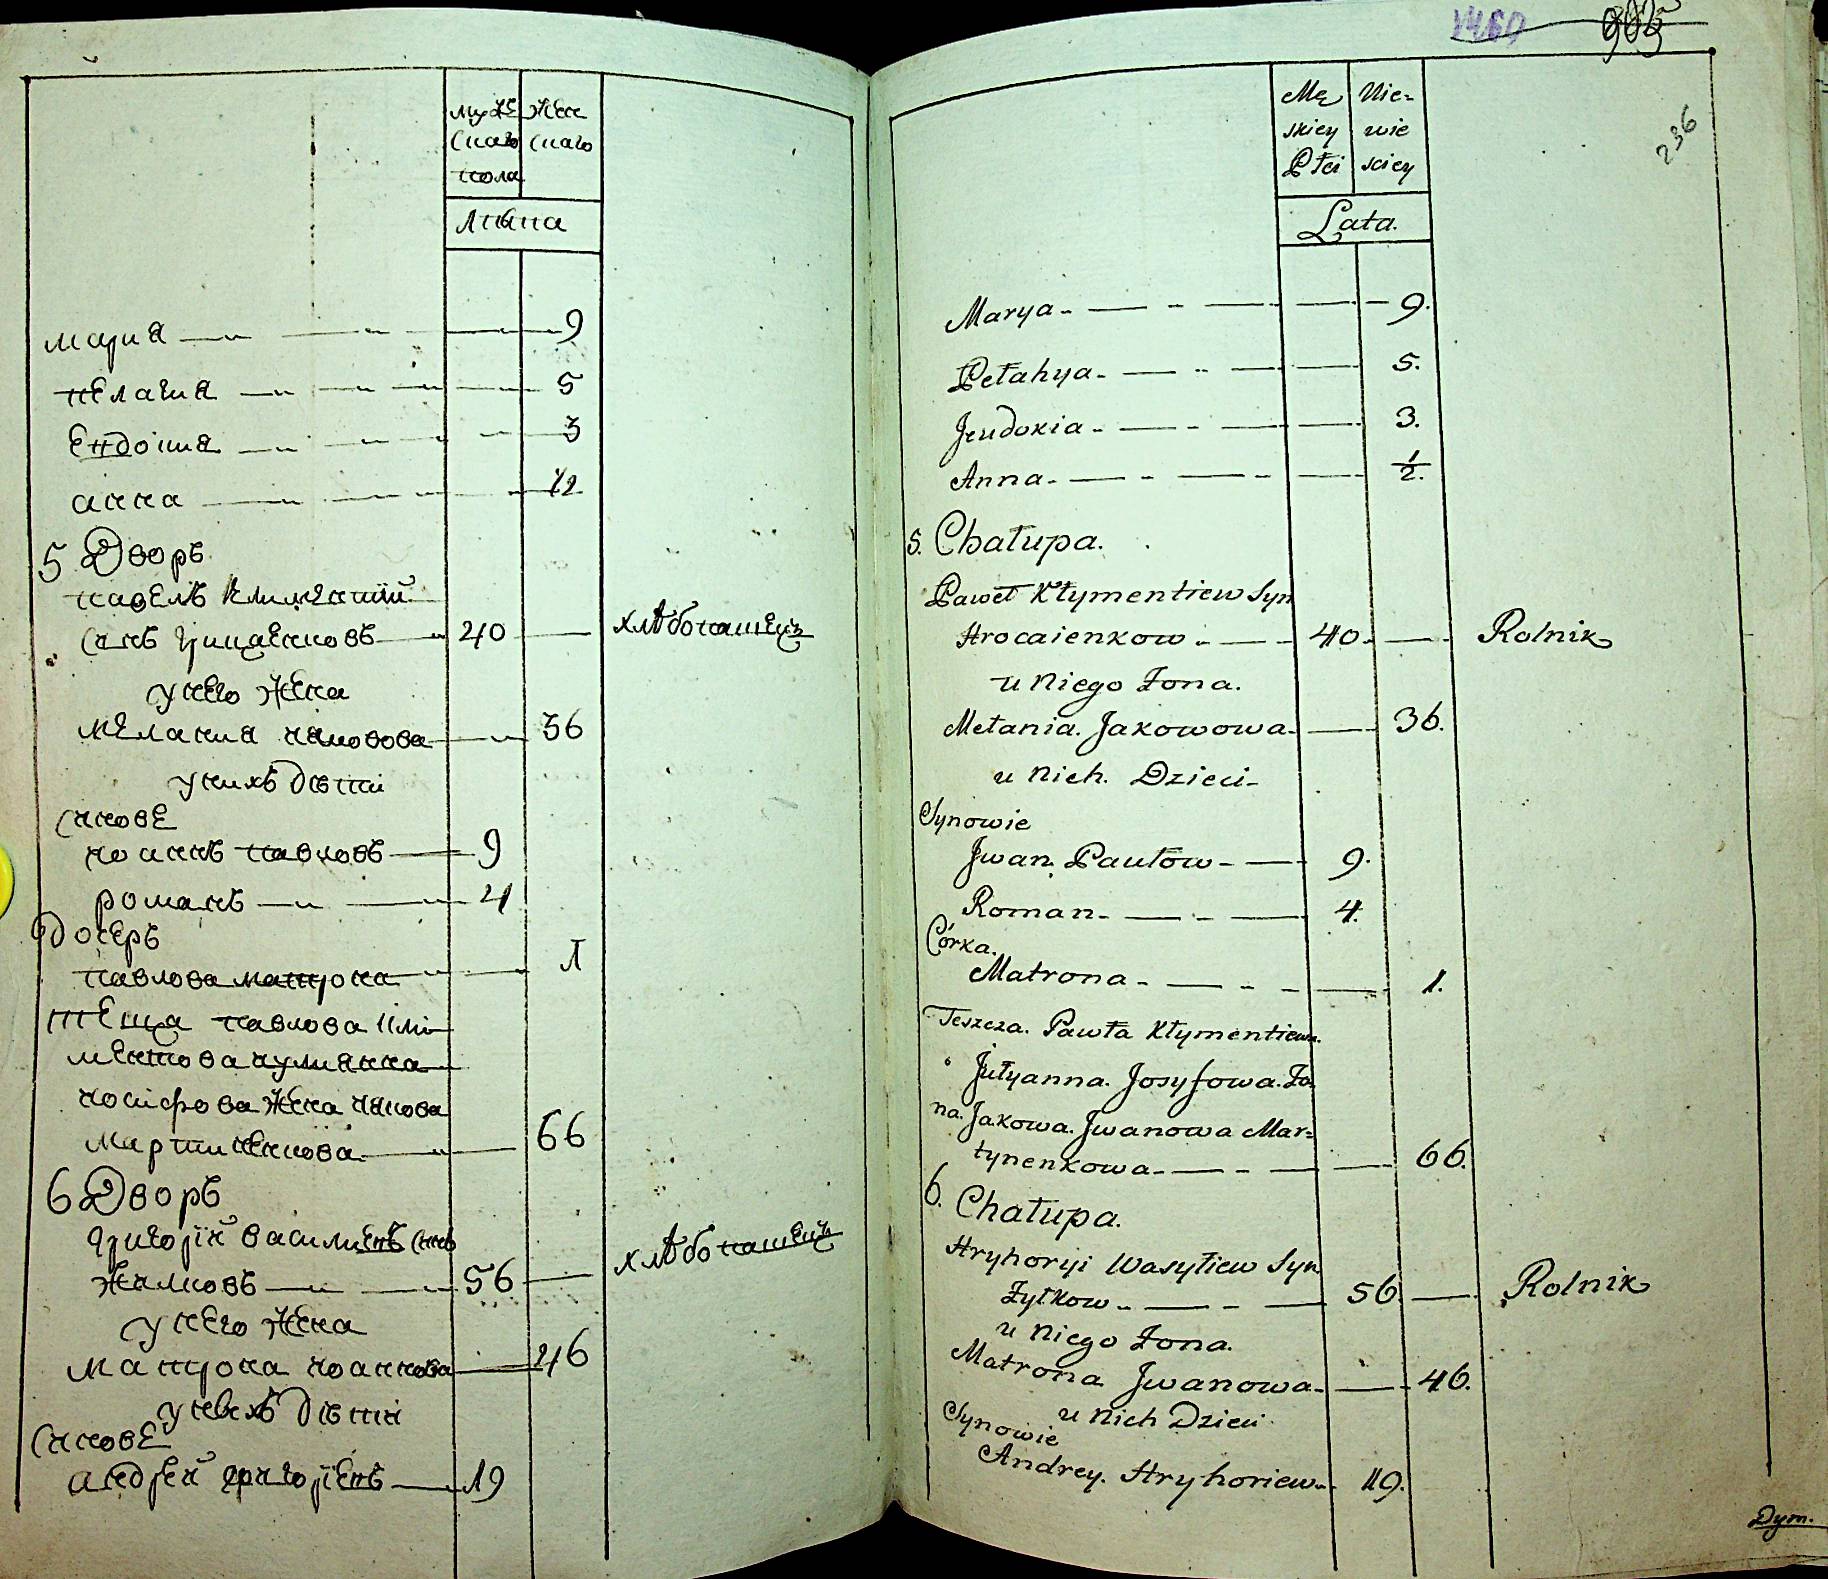 муже
скаго
пола
жен
скаго
лѣта
мария 9
пелагия 5
Евдокия 3
анна 1/2
5 Дворъ
павелъ климентий
синъ грицаенковъ 40 хлѣбопашецъ
у него жена
мелания яковова 36
у нихъ дѣти
синове
иоаннъ павловъ 9
романъ 4
дочеръ
павлова матрона 1
теща павлова кли
ментова иулианна
иосифова жена якова
мартиненкова 66
6 Дворъ
григорій василиевъ синъ
жилковъ 56 хлѣбопашецъ
у него жена
матрона иоаннова 46
у нихъ дѣти
синове
андрей григориевъ 19
1460 903
236
Mę
skiey
Płci
Nie-
wie
sciey
Lata.
Marya 9.
Pełahya 5.
Jeudokia 3.
Anna 1/2.
5. Chałupa.
Paweł Kłymentiew Syn
Hrocaienkow 40. Rolnik
u Niego Żona.
Mełania Jakowowa 36.
u Nich. Dzieci
Synowie
Jwan Pautow 9.
Roman 4.
Córka.
Matrona 1.
Teszcza. Pawła Kłymentiewa.
Jułyanna. Josyfowa. Żo
na. Jakowa. Jwanowa Mar=
tynenkowa 66.
6. Chałupa.
Hryhoryi Wasyliew Syn
Żyłkow 56. Rolnik
u Niego Żona.
Matrona Jwanowa 46.
u Nich Dzieci
Synowie
Andrey. Hryhoriew 19.
Dym.